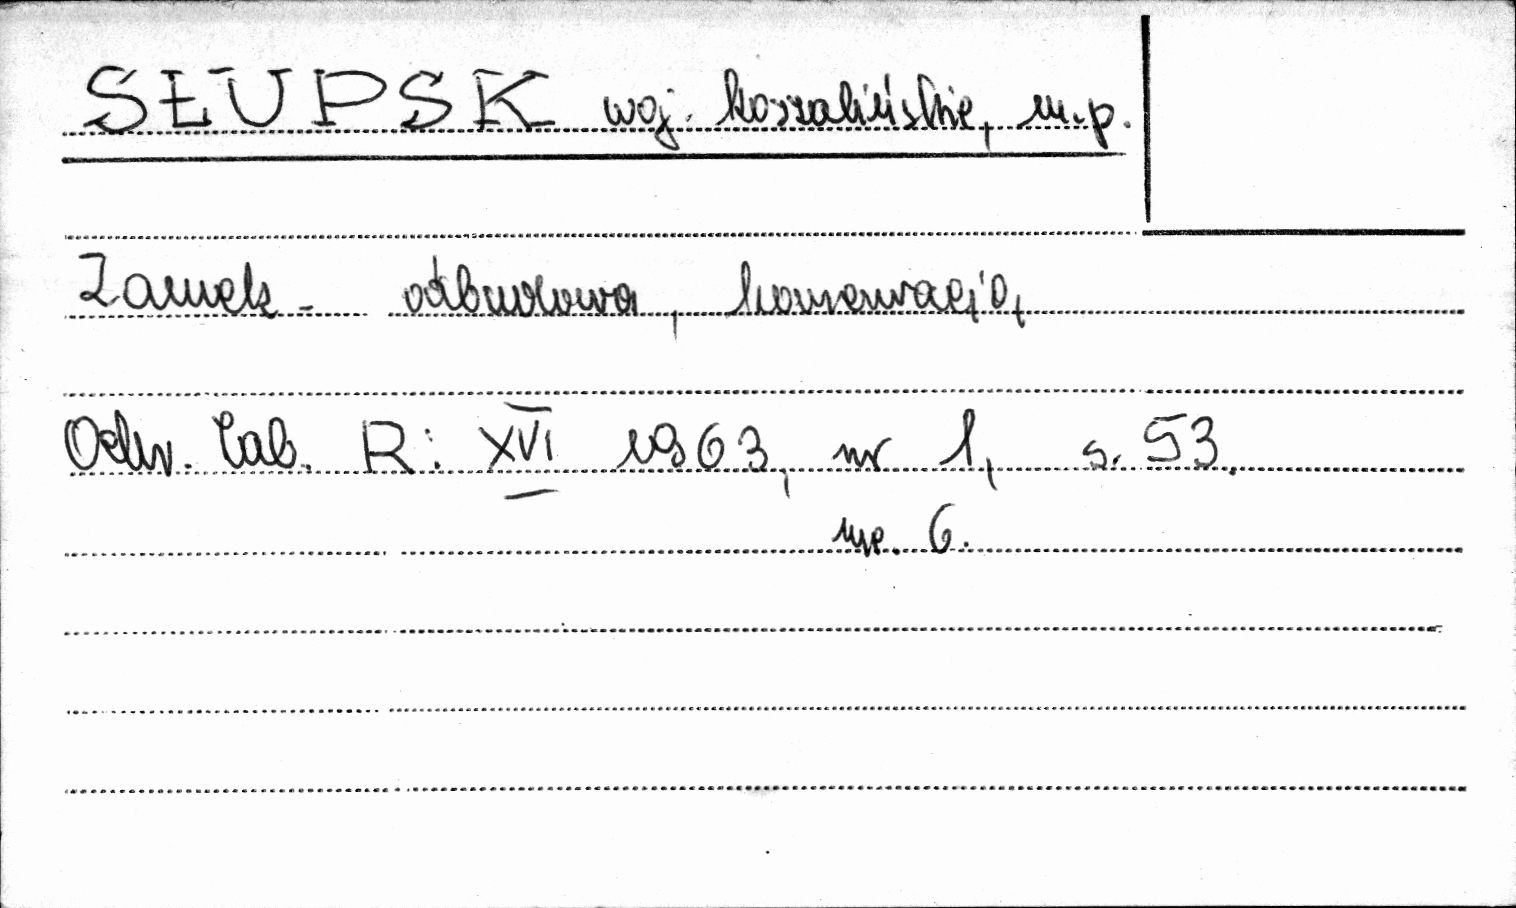 SŁUPSK woj. koszalińskie, m.p.
Zamek - odbudowa, konserwacja,
Ochr. Zab. R: XVI 1963, nr 1, s. 53.
ryc. 6.